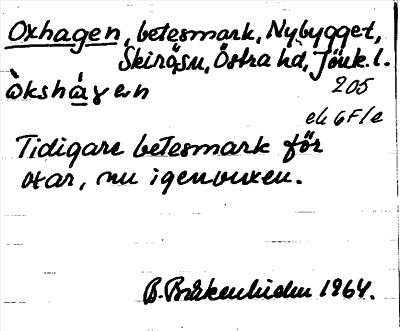 Oxhagen, betesmark, Nybygget,
Skirösn, Östra hd, Jönk. l.
òkshá̱gen 205
ek 6F/e
Tidigare betesmark för
oxar, nu igenvuxen.
B. Bråkenhielm 1964.